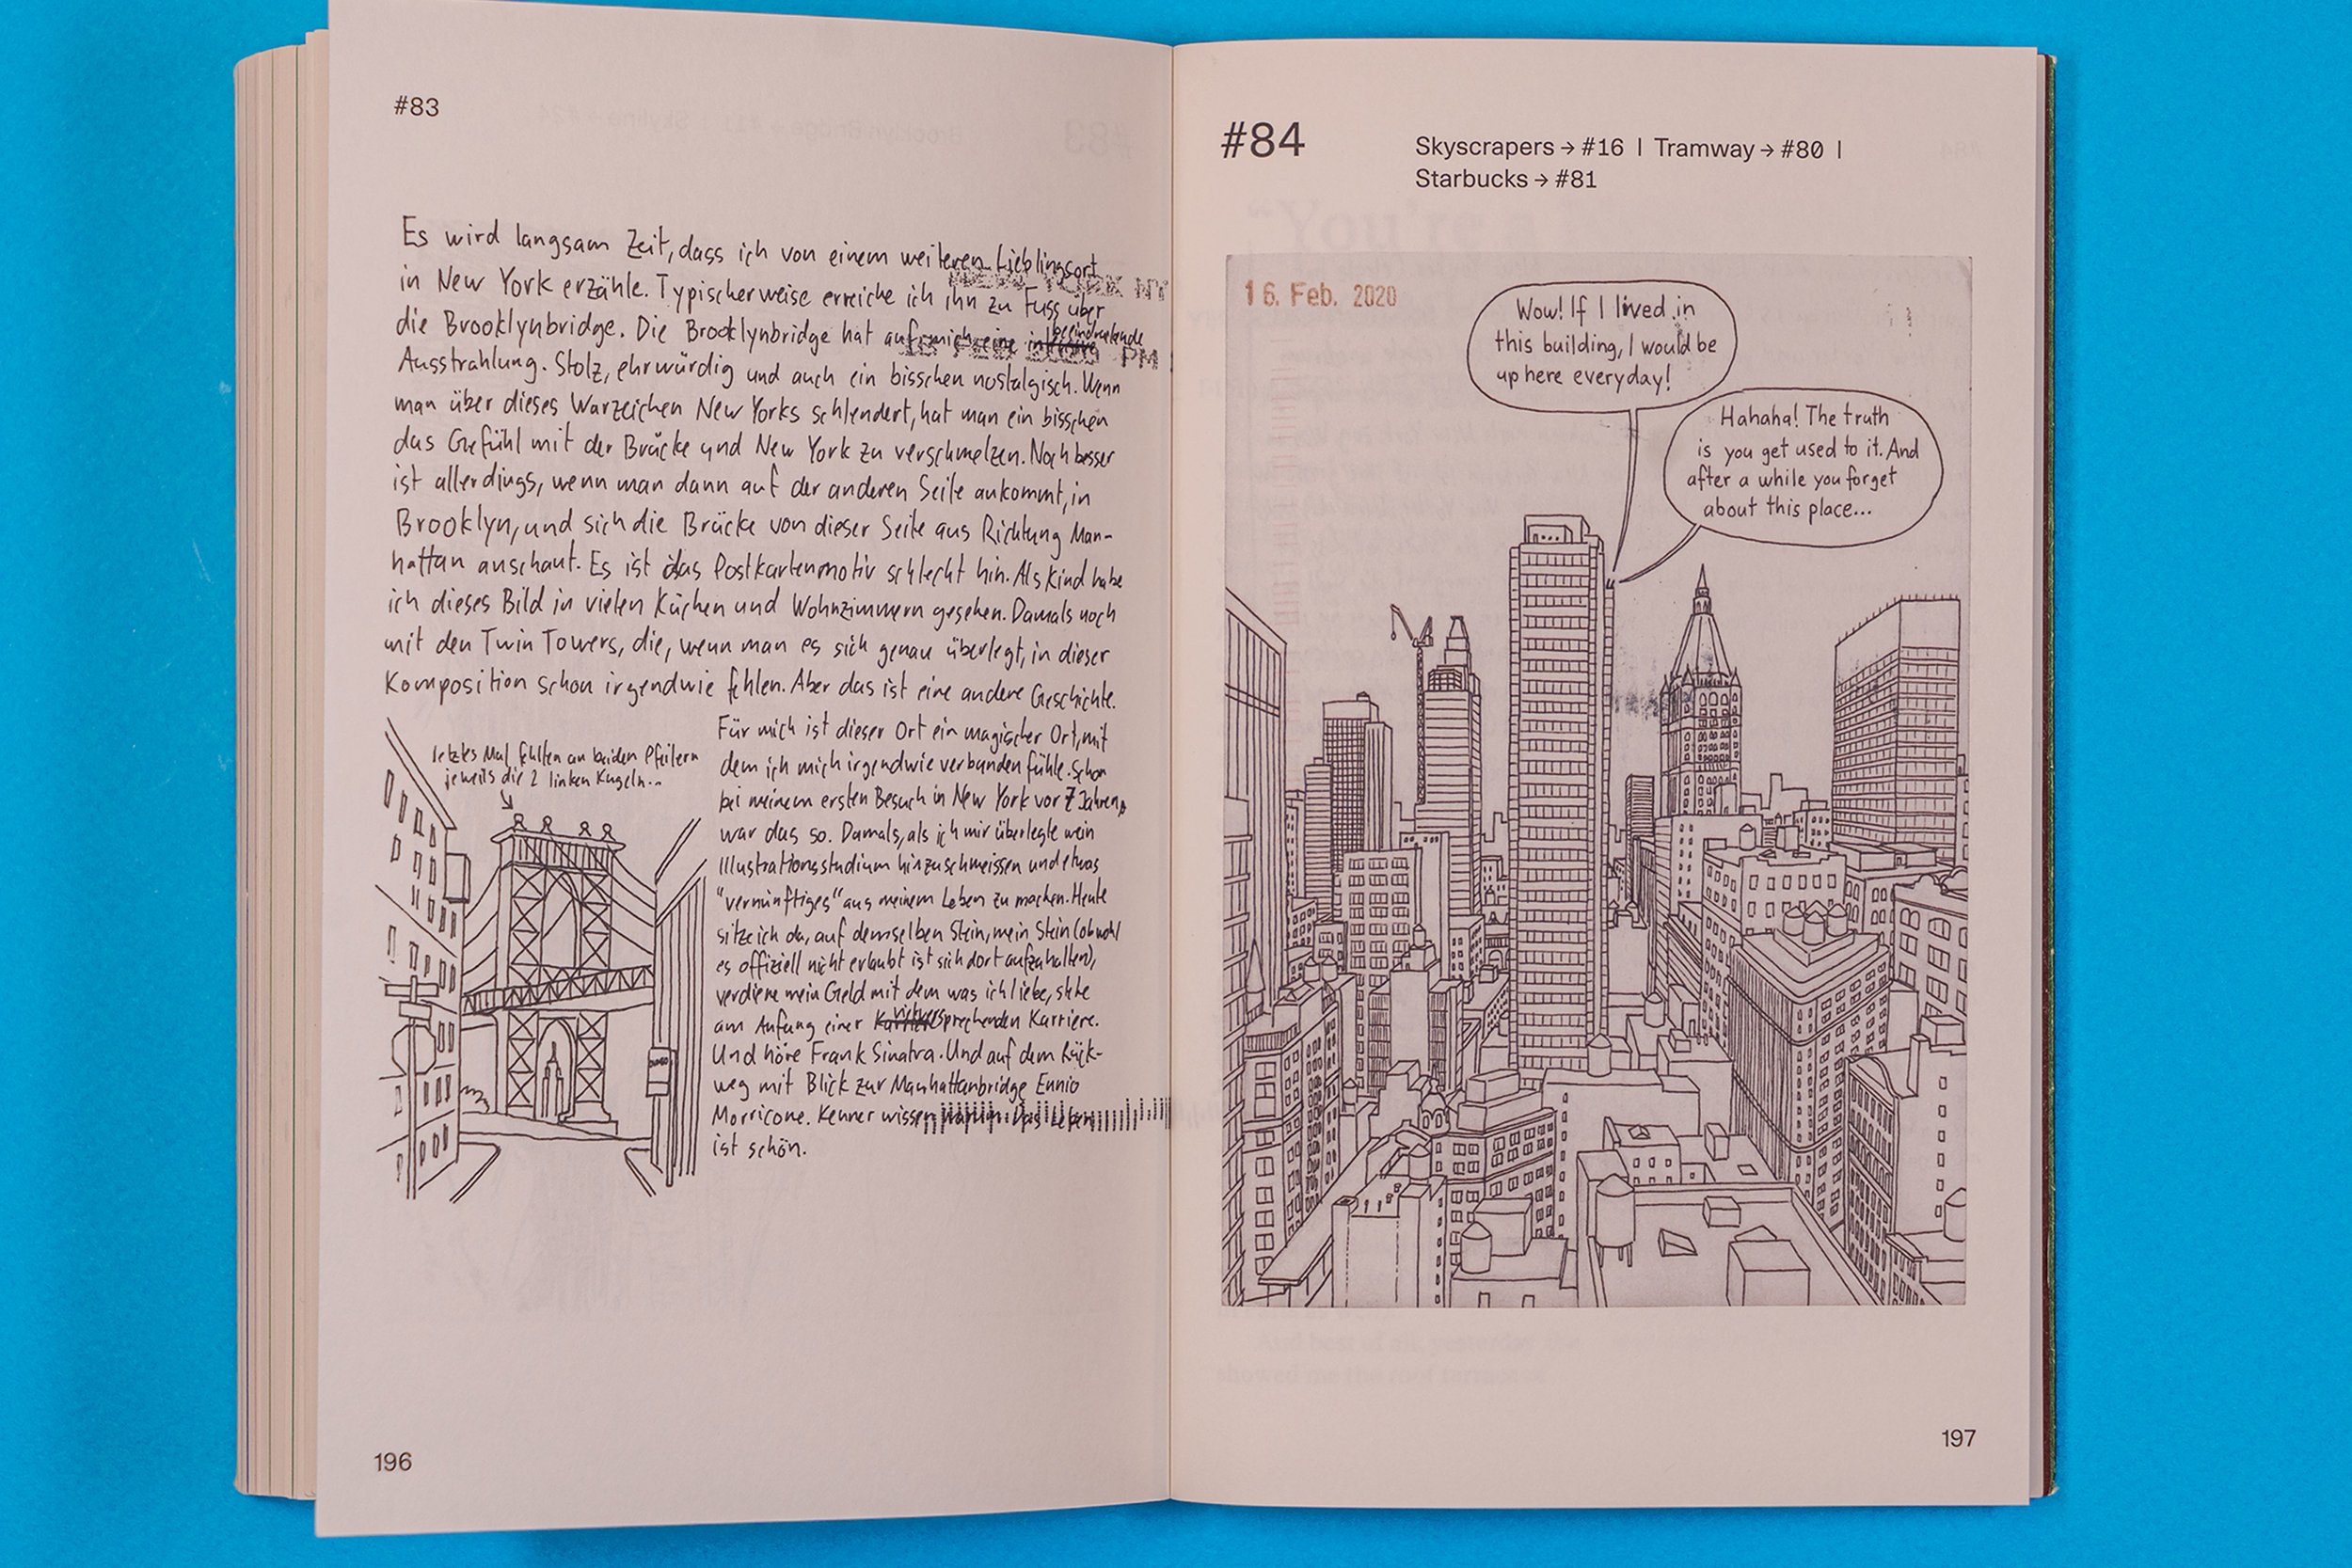 #83
Es wird langsam Zeit, dass ich von einem weiteren Lieblingsort
in New York erzähle. Typischerweise erreiche ich ihn zu Fuss über
die Brooklynbridge. Die Brooklynbridge hat auf mich eine beeindruckende
Ausstrahlung. Stolz, ehrwürdig und auch ein bisschen nostalgisch. Wenn
man über dieses Warzeichen New Yorks schlendert, hat man ein bisschen
das Gefühl mit der Brücke und New York zu verschmelzen. Noch besser
ist allerdings, wenn man dann auf der anderen Seite ankommt, in
Brooklyn, und sich die Brücke von dieser Seite aus Richtung Man-
hattan anschaut. Es ist das Postkartenmotiv schlecht hin. Als Kind habe
ich dieses Bild in vielen Küchen und Wohnzimmern gesehen. Damals noch
mit den Twin Towers, die, wenn man es sich genau überlegt, in dieser
Komposition schon irgendwie fehlen. Aber das ist eine andere Geschichte.
letztes Mal fehlten an beiden Pfeilern
jeweils die 2 linken Kugeln...
Für mich ist dieser Ort ein magischer Ort, mit
dem ich mich irgendwie verbunden fühle. Schon
bei meinem ersten Besuch in New York vor 7 Jahren,
war das so. Damals, als ich mir überlegte mein
Illustrationsstudium hinzuschmeissen und etwas
"vernünftiges" aus meinem Leben zu machen. Heute
sitze ich da, auf demselben Stein, mein Stein (obwohl
es offiziell nicht erlaubt ist sich dort aufzuhalten),
verdiene mein Geld mit dem was ich liebe, stehe
am Anfang einer vielversprechenden Karriere.
Und höre Frank Sinatra. Und auf dem Rück-
weg mit Blick zur Manhattanbridge Ennio
Morricone. Kenner wissen warum. Das Leben
ist schön.
NEW YORK NY
PM
196
#84
Skyscrapers → #16 | Tramway → #80 |
Starbucks → #81
16. Feb. 2020
Wow! If I lived in
this building, I would be
up here everyday!
Hahaha! The truth
is you get used to it. And
after a while you forget
about this place...
197